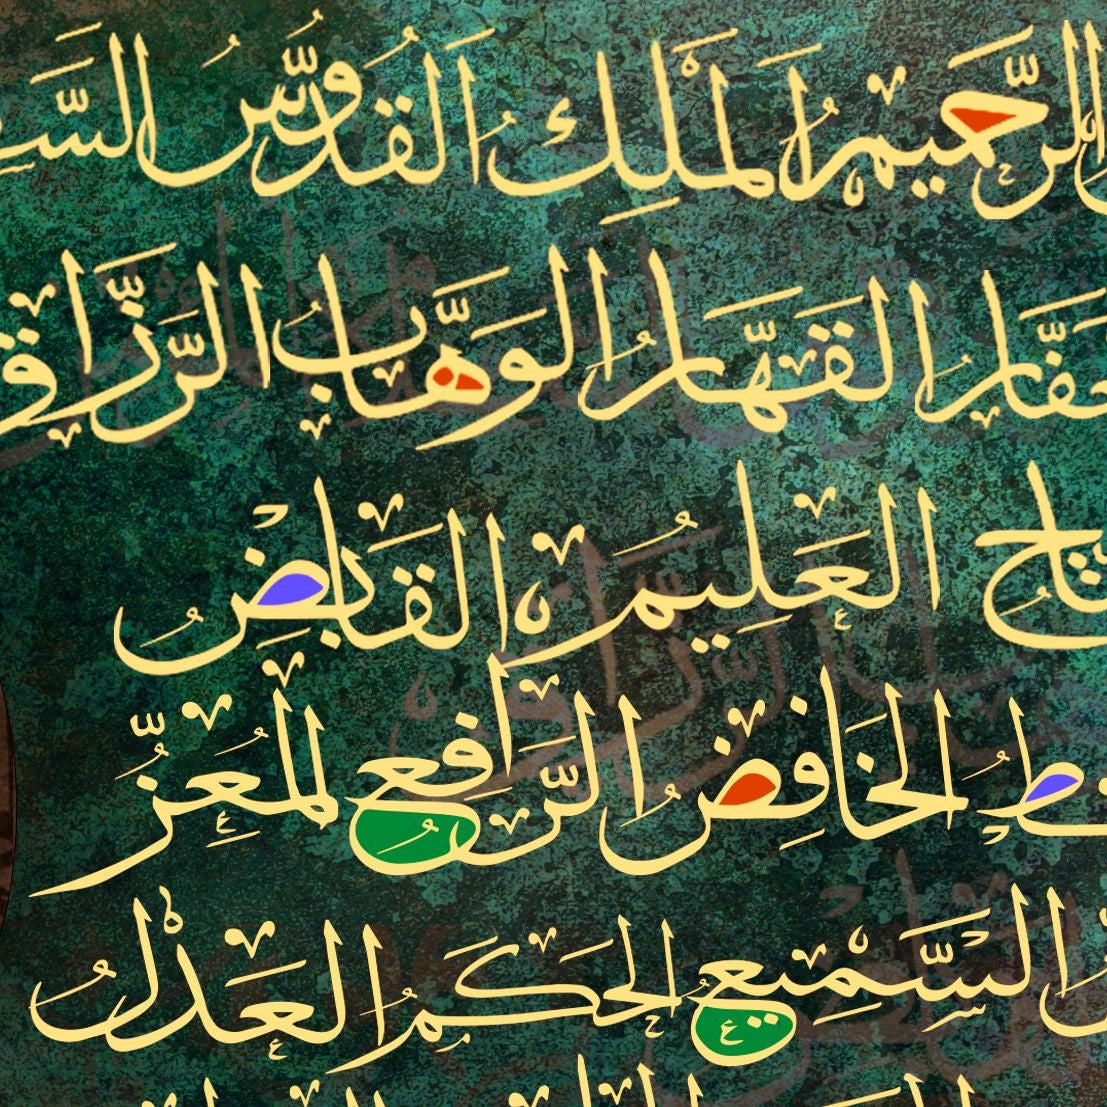 الرَّحِيمُ الْمَلِكُ الْقُدُّوسُ
الْقَهَّارُ الْوَهَّابُ الرَّزَّاقُ
الْعَلِيمُ الْقَابِضُ
الْخَافِضُ الرَّافِعُ الْمُعِزُّ
السَّمِيعُ الْحَكَمُ الْعَدْلُ